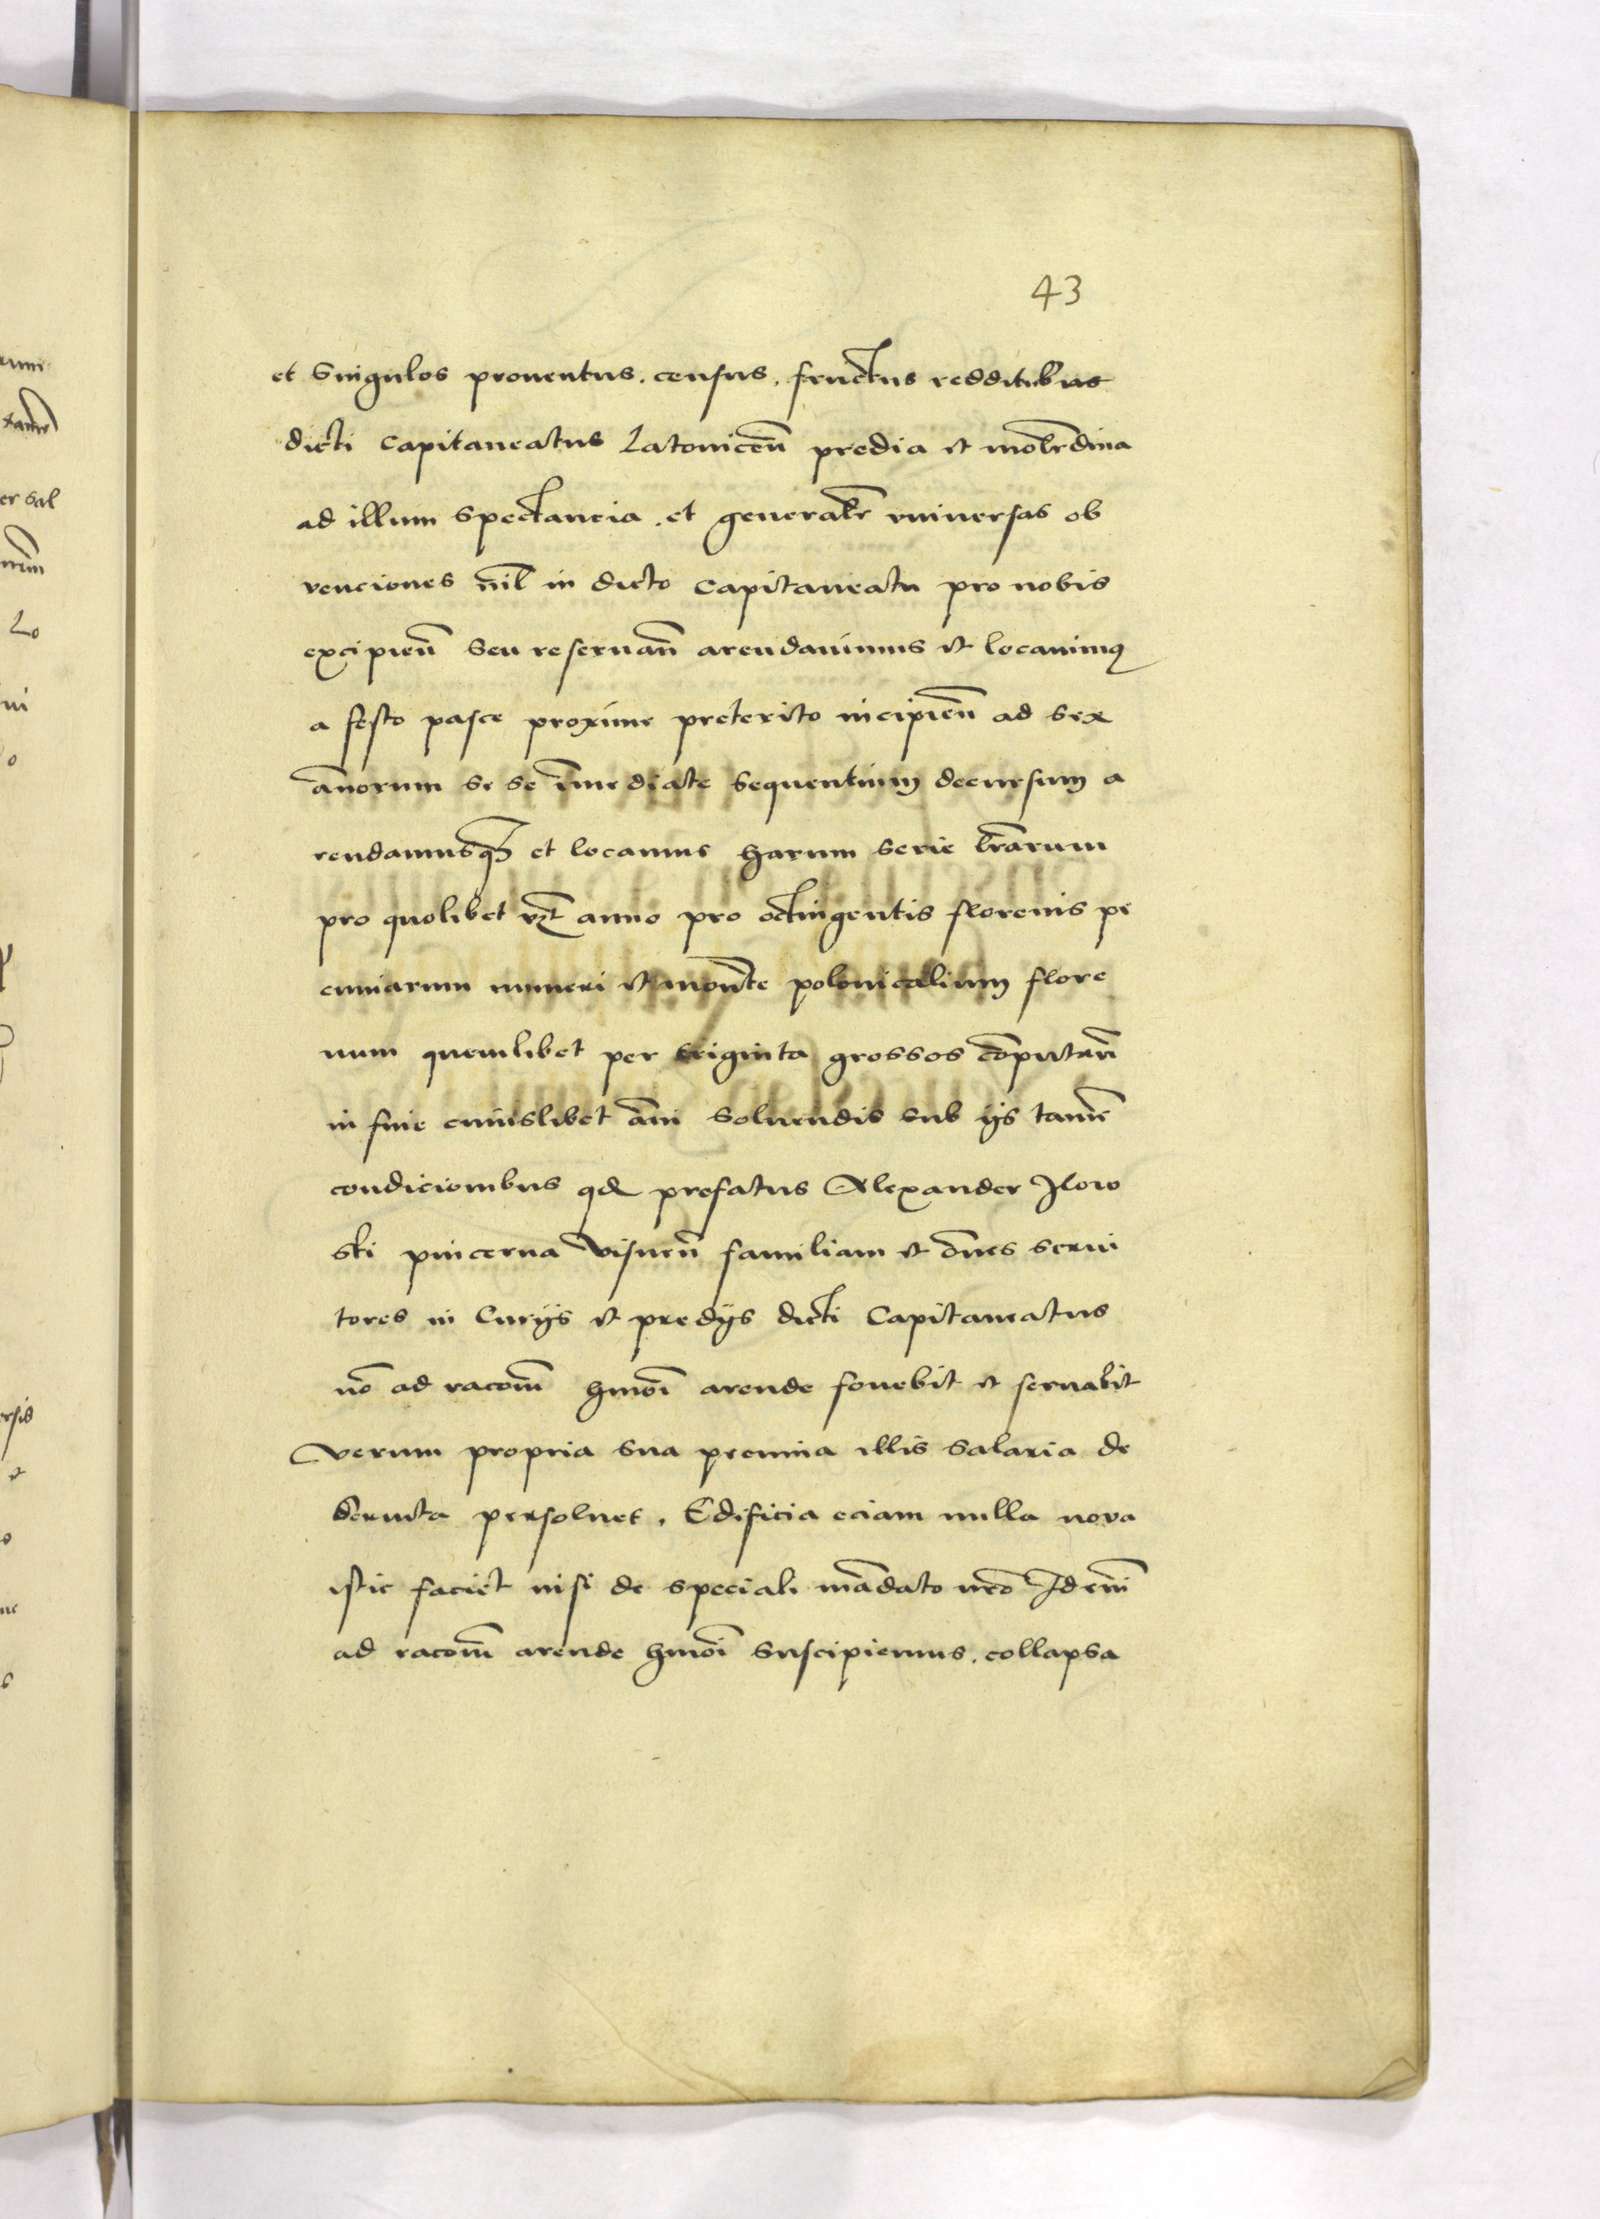 43
et Singulos prouentus. census. fructus redditibus
dicti Capitaneatus Latouicen̄ predia et mole͞dina
ad illum Spectancia. et generalr̄ vniuersas ob
uenciones nīl in dicto Capitaneatu pro nobis
excipien̄ Seu reseruan̄ arendauimus et locauimꝰ
a festo pasce proxime preterito incipien̄ ad Sex
ān̄orum se se īmediate Sequentium decursum a
rendamusqꝫ et locamus harum Serie lr̄arum
pro quolibet vꝫt anno pro octingentis florenis pe
cuniarum numeri et monēte polonicalium flore
num quemlibet per triginta grossos cōputan̄
in fine cuiuslibet ān̄i Soluendis sub ijs tamē
condicionibus qđ prefatus Alexander Ilow
ski pincerna Visnen̄ familiam et ōnes serui
tores in Curijs et predijs dicti Capitaneatus
nō ad racōm̄ hmōi arende fouebit et seruabit
Verum propria sua pecunia illis Salaria de
seruita persoluet. Edificia eciam nulla noua
istic faciet nisi de speciali mādato nr̄o Id eni̅
ad racōm̄ arende hmōi Suscipiemus. collapsa